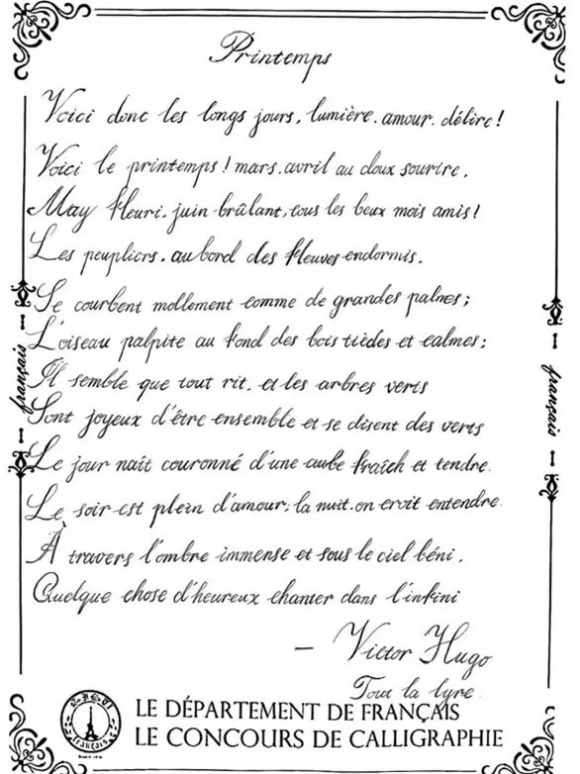 Printemps
Voici donc les longs jours, lumière, amour, délire!
Voici le printemps! mars, avril au doux sourire,
May fleuri, juin brûlant, tous les beux mois amis!
Les peupliers, au bord des fleuves endormis,
Se courbent mollement comme de grandes palmes;
L'oiseau palpite au fond des bois tièdes et calmes;
Il semble que tout rit, et les arbres verts
Sont joyeux d'être ensemble et se disent des verts
Le jour naît couronné d'une aube fraîch et tendre.
Le soir est plein d'amour; la nuit, on croit entendre.
À travers l'ombre immense et sous le ciel béni,
Quelque chose d'heureux chanter dans l'infini
— Victor Hugo
Tout la lyre
français
français
français
LE DÉPARTEMENT DE FRANÇAIS
LE CONCOURS DE CALLIGRAPHIE